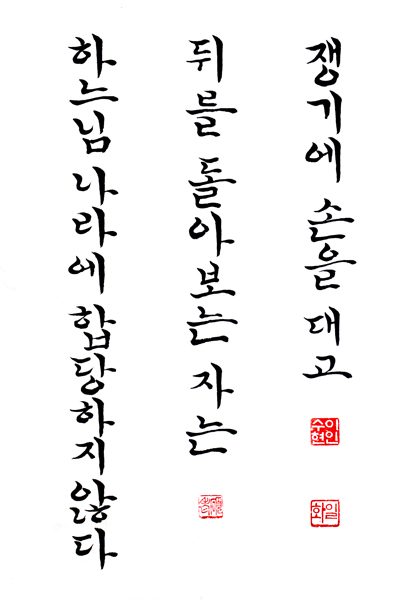 쟁기에 손을 대고
이인수현
일화
뒤를 돌아보는 자는
하느님 나라에 합당하지 않다